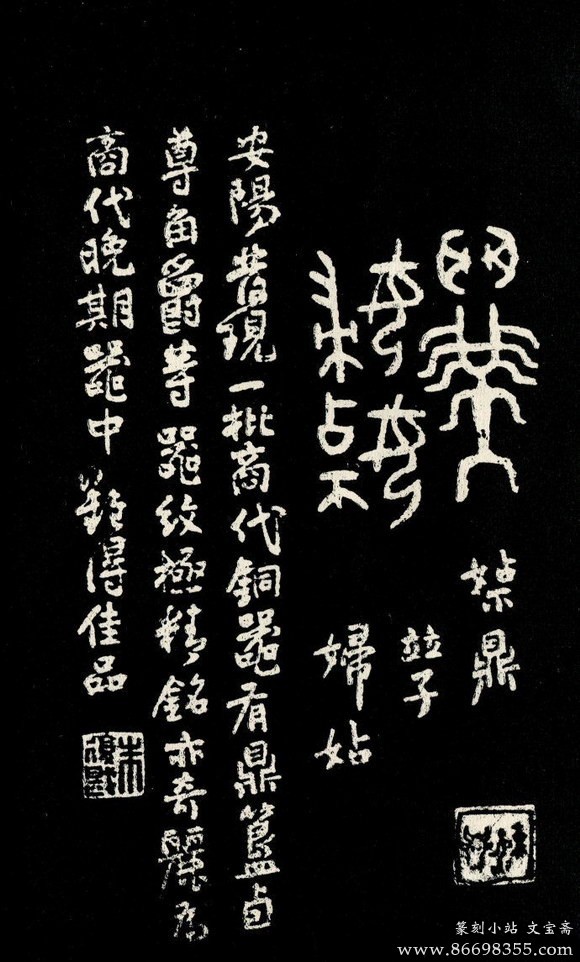 鼎
竝子
婦
安陽昔現一批商代銅器有鼎簋卣
尊角爵等器紋極精銘亦奇麗為
商代晚期器中難得佳品
朱復戡
篆刻小站 文宝斋
www.86698355.com